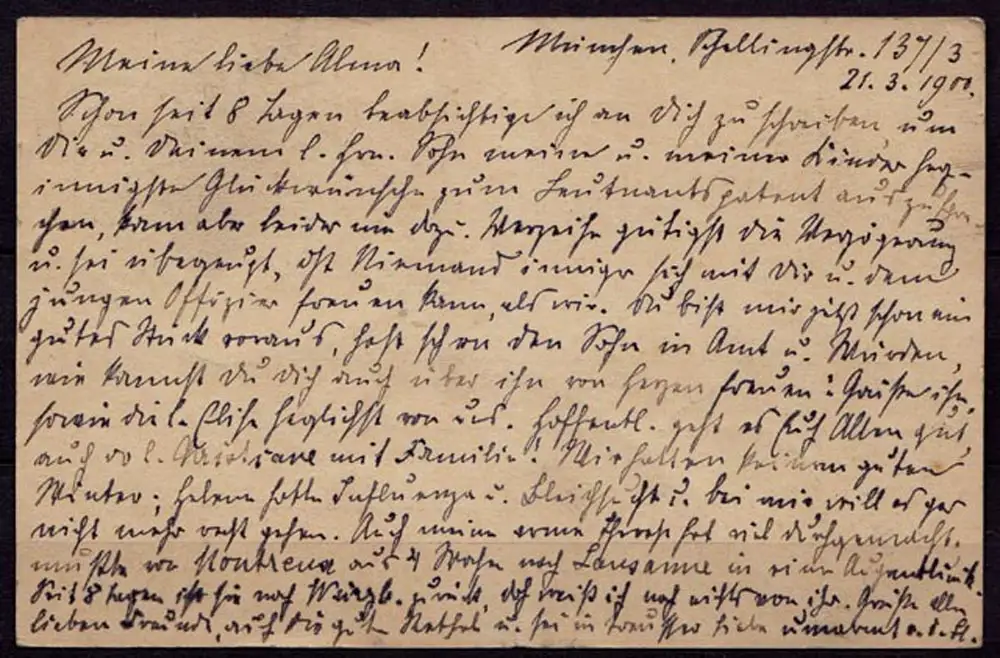 München, Schellingstr. 137/3
21.3.1900.
Meine liebe Alma!
Schon seit 8 Tagen beabsichtige ich an Dich zu schreiben, um
Dir u. Deinem l. Hrn. Sohn meine u. meiner Kinder herz-
innigste Glückwünsche zum Leutnantspatent auszuspre-
chen, kam aber leider nie dazu. Verzeihe gütigst die Verzögerung
u. sei überzeugt, dß Niemand inniger sich mit Dir u. dem
jungen Offizier freuen kann, als wir. Du bist mir jetzt schon ein
gutes Stück voraus, hast schon den Sohn in Amt u. Würden,
wie kannst Du Dich auch über ihn von Herzen freuen! Grüße ihn,
sowie die l. Elise herzlichst von uns. Hoffentl. geht es Euch Allen gut,
auch der l. mit Familie! Wir hatten keinen guten
Winter; Helene hatte Influenza u. Bleichsucht u. bei mir will es gar
nicht mehr recht gehen. Auch meine arme Therese hat viel durchgemacht,
mußte von Montreux aus 4 Wochen nach Lausanne in eine Augenklinik.
Seit 8 Tagen ist sie nach Würzb. zurück, doch weiß ich noch nichts von ihr. Grüße alle
lieben Freunde, auch die gute u. sei in treuster Liebe umarmt v. d.